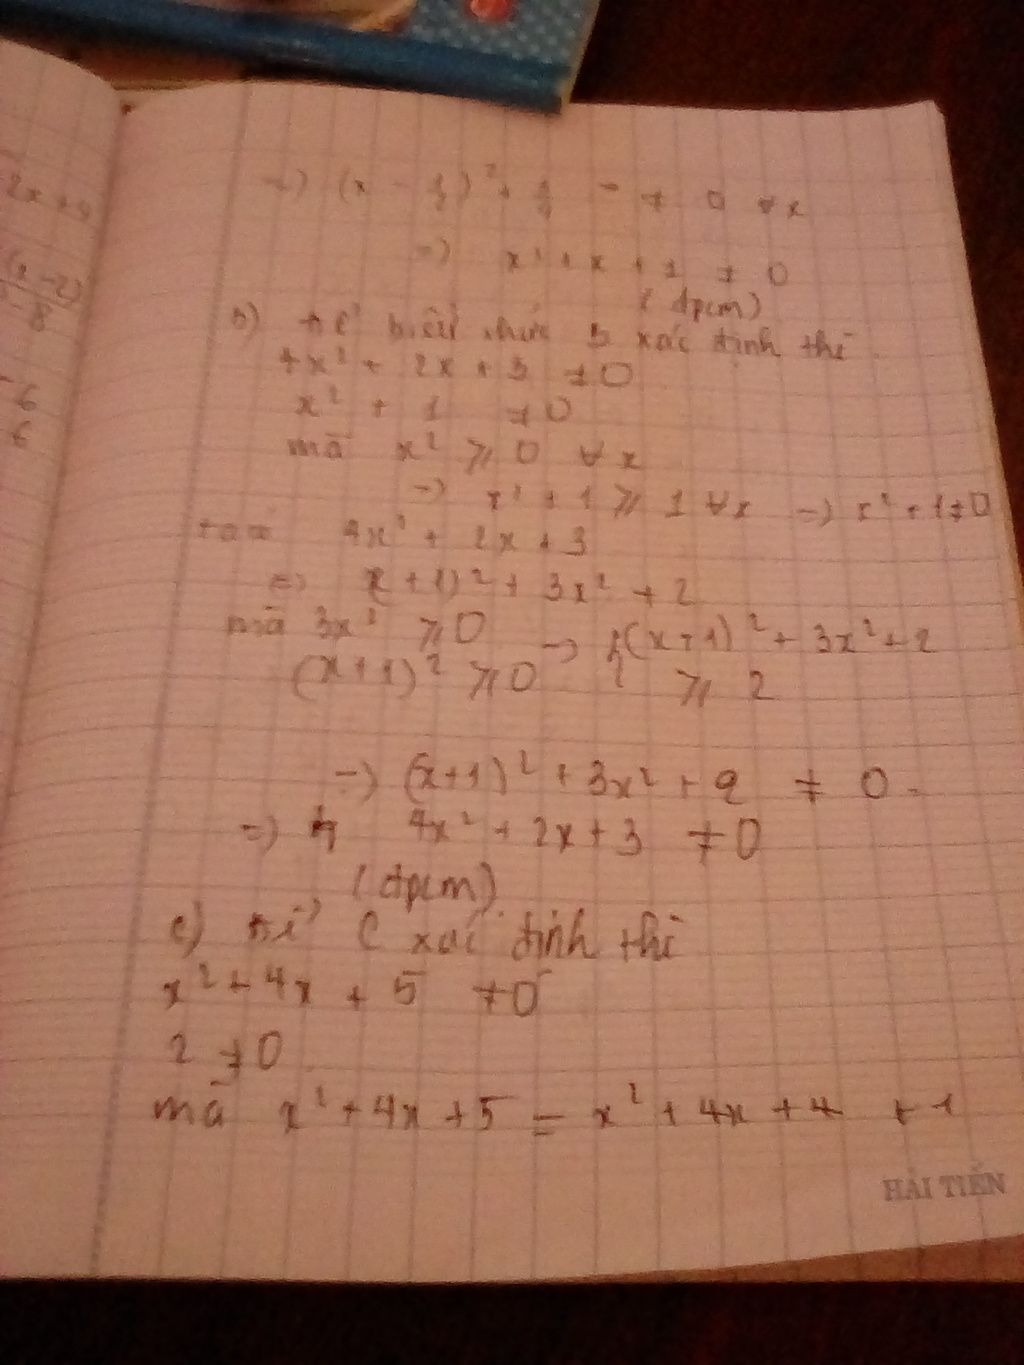 -2x+9
(x-2)
-8
-6
6
=) (x - 1/2)² + 3/4 ≠ 0 ∀ x
=) x² + x + 1 ≠ 0
(đpcm)
b) để biểu thức B xác định thì
4x² + 2x + 3 ≠0
x² + 1 ≠0
mà x² ≥ 0 ∀ x
=) x² + 1 ≥ 1 ∀x =) x² + 1≠0
4x² + 2x + 3
=) (x+1)² + 3x² + 2
mà 3x² ≥0
(x+1)² ≥0 → (x+1)² + 3x² + 2
≥ 2
→) (x+1)² + 3x² + 2 ≠ 0
=) 4x² + 2x + 3 ≠0
(đpcm)
c) để C xác định thì
x² + 4x + 5 ≠0
2 ≠0
mà x² + 4x + 5 = x² + 4x + 4 + 1
HẢI TIẾN